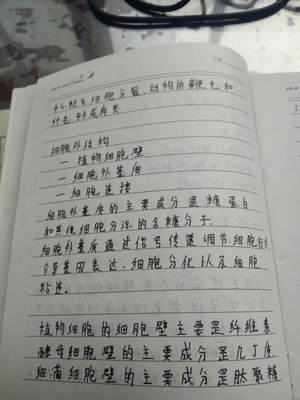 中心粒与细胞分裂、动物的鞭毛和
纤毛形成有关
细胞外结构
一 植物细胞壁
一 细胞外基质
一 细胞连接
细胞外基质的主要成分是糖蛋白
和其他细胞分泌的含糖分子.
细胞外基质通过信号传递调节细胞行为
介导基因表达、细胞分化以及细胞
粘连.
植物细胞的细胞壁主要是纤维素
酵母细胞壁的主要成分是几丁质
细菌细胞壁的主要成分是肽聚糖